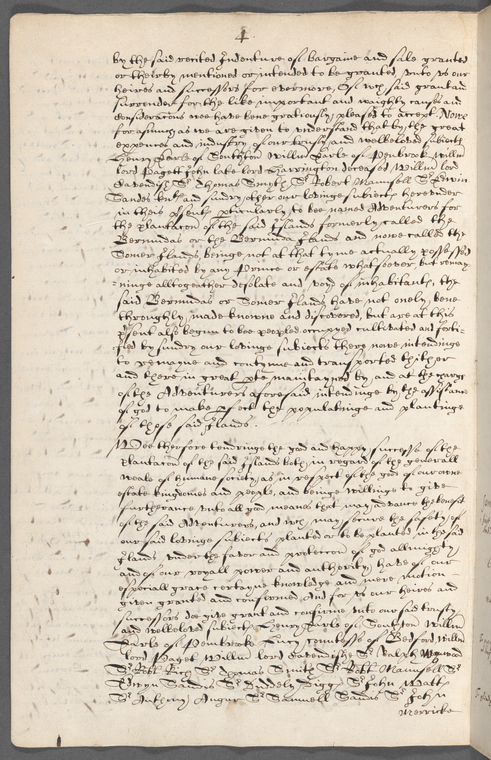 4
by the said recited Indenture of bargaine and sale granted
or thereby mentioned or intended to be granted unto us our
heires and successors for evermore, Of wch said grant and
surrender for the like important and waighty causes and
consideracons wee have bene gratiously pleased to accept. Nowe
for asmuch as we are given to understand that by the great
expences and industry of our trusty and welbeloved subiects
Henry Earle of Southton Willm Earle of Penbrook Willm
lord Pagett John late lord Harrington deceased Willm lord
Cavendish Sr Thomas Smyth Sr Robert Maunsell Sr Edwin
Sandes knts and sundry other our lovinge subiects hereunder
in theis psents pticularly to bee named Adventurers for
the plantacon of the said Islands formerly called the
Bermudas or the Bermuda Ilands and nowe called the
Somer Ilands beinge not at that tyme actually possessed
or inhabited by any Prince or estate whatsoever, but remay
=ninge alltogeather desolate and voyd of inhabitants, the
said Bermudas or Somer Ilands have not onely bene
throughly made knowne and discovered, but are at this
psent also begun to bee peopled occupyed cultivated and forti-
fied by sundry our lovinge subiects there nowe intendinge
to remayne and contynue and transported thither
and there in great pte maintayned by and at the charge
of the Adventurers aforesaid intendinge by the assistance
of god to make pfect the populatinge and plantinge
of those said Ilands.
Wee therfore tendringe the good and happy successe of the
plantacon of the said Islands both in regard of the generall
weale of humane society, as in respect of the good of our owne
estate kingdomes and people, and beinge willinge to give
furtherance unto all good meanes that may advance the benefit
of the said Adventurers, and wch may secure the safety of
our said lovinge subiects planted or to bee planted in the said
Ilands under the favor and proteccon of god allmighty
and of our royall power and authority, have of our
especiall grace certayne knowledge and meere motion
given granted and confirmed And for us our heires and
successors doe give grant and confirme unto our said trusty
and welbeloved subiects Henry Earle of Southton Willm
Earle of Penbrooke Lucy countesse of Bedford Willm
lord Paget Willm lord Cavendishe Sr Ralph Wynwood
Sr Robt Rich Sr Thomas Smith Sr Robt Maunsell Sr
Edwyn Sandis Sr Duddely Digges Sr John Watts
Sr Anthony Augur Sr Samuell Sandis Sr John
Merricke